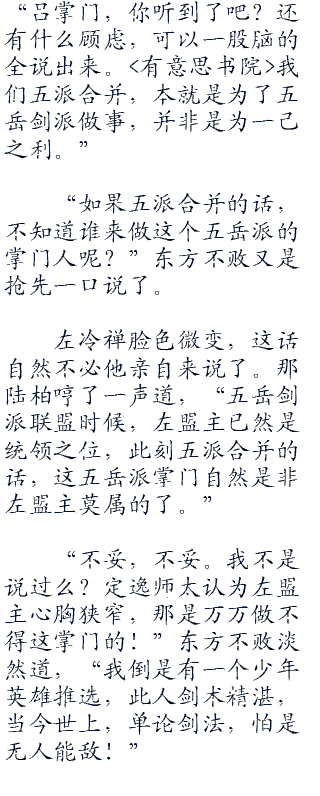 “吕掌门，你听到了吧？还
有什么顾虑，可以一股脑的
全说出来。<有意思书院>我
们五派合并，本就是为了五
岳剑派做事，并非是为一己
之利。”
“如果五派合并的话，
不知道谁来做这个五岳派的
掌门人呢？”东方不败又是
抢先一口说了。
左冷禅脸色微变，这话
自然不必他亲自来说了。那
陆柏哼了一声道，“五岳剑
派联盟时候，左盟主已然是
统领之位，此刻五派合并的
话，这五岳派掌门自然是非
左盟主莫属的了。”
“不妥，不妥。我不是
说过么？定逸师太认为左盟
主心胸狭窄，那是万万做不
得这掌门的！”东方不败淡
然道，“我倒是有一个少年
英雄推选，此人剑术精湛，
当今世上，单论剑法，怕是
无人能敌！”